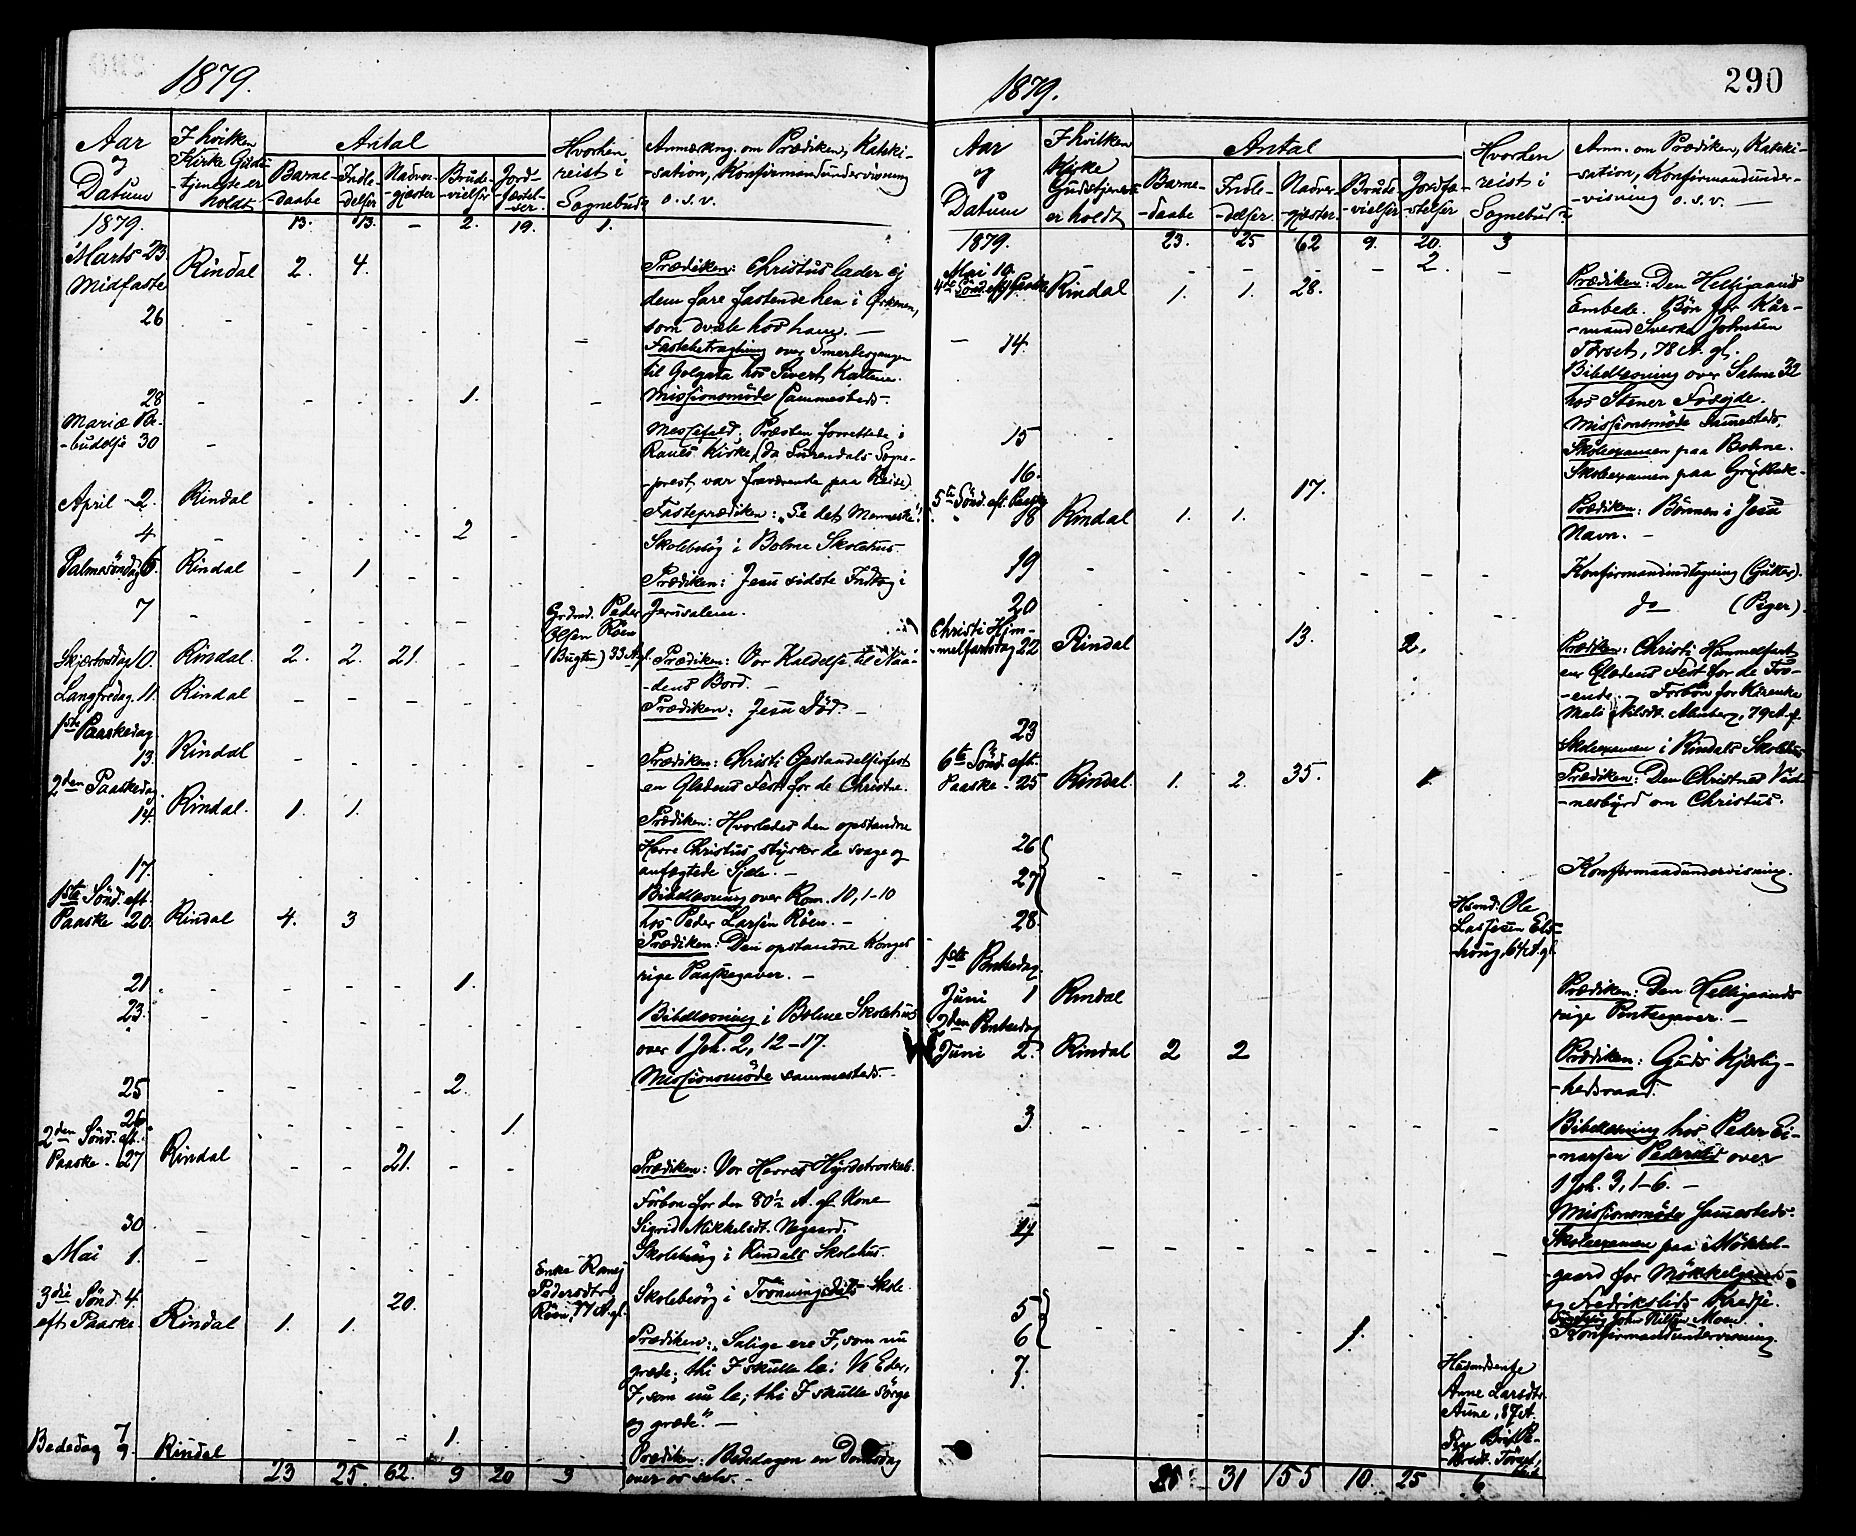 1879.
Aar og Datum
I hvilken Kirke Guds-tjeneste er holdt
Antal
Barne-daabe
Indle-delser
Nadver-gjæster
Brude-vielser
Jordfæstelser.
Hvorhen reist i Sognebud?
Anmærkng. om Prædiken, Kateki-
-sation, Konfirmandundervisning
o. s. v.
1879. 13. 13. - 2. 19. 1.
Marts 23
Midfaste Rindal 2. 4. Prædiken: Christus lader ej
dem fare fastende hen i Ørkenen,
26 som dvæle hos ham. -
Fastebetragtning over Smertesgangen
til Golgata hos Sivert
28 1. Missionsmøde sammesteds.
Mariæ Be-
-budelse 30 Messefald. Præsten forrettede i
Ranes Kirke (da Surendals Sogne-
-prest var fraværende paa Reise)
April 2. Rindal Fasteprædiken: "Se det Menneske"!
4 2 Skolebesøg i Bolme Skolehus.
Palmesøndag 6. Rindal - 1. Prædiken: Jesu sidste Indtog i
Jerusalem.
7 Grdmd. Peder
Olsen Røen
(Bugten) 33 A. gl.
Skjærtorsdag 10. Rindal. 2. 2. 21. Prædiken: Vor Kaldelse til Naa-
-dens Bord. -
Langfredag 11. Rindal Prædiken: Jesu Død. -
1ste Paaskedag
13. Rindal Prædiken: Christi Opstandelsesfest
en Glædens Fest for de Christne.
2den Paaskedag
14. Rindal. 1. 1. Prædiken: Hvorledes den opstandne
Herre Christus styrker de svage og
anfægtede Sjæle. -
17. Bibellæsning over Rom. 10, 1-10
hos Peder Larsen Røen. -
1ste Sønd. eft.
Paaske 20. Rindal 4. 3 Prædiken: Den opstandne Konges
rige Paaskegaver. -
21 1.
23. Bibellæsning i Bolme Skolehus
over 1 Joh. 2, 12-17.
Missionsmøde sammesteds. -
25 2.
26 1.
2den Sønd. eft.
Paaske. 27 Rindal 21. Prædiken: Vor Herres Hyrdetroskab.
Forbøn for den 80½ A. gl. Kone
Sigrid Mikkelsdt.
30 Skolebesøg i Rindals Skolehus.
Mai 1. Enke
Pedersdtr.
Røen, 77 A. gl. Skolebesøg i Skole.
3die Sønd. 4.
eft. Paaske Rindal 1. 1. 20. Prædiken: "Salige ere I, som nu
græde; thi I skulle le: Ve Eder,
I, som nu le; thi I skulle sørge
og græde." -
7 1.
Bededag 9. Rindal Prædiken: Bededagen en Domsdag
over os selv. -
23 25. 62. 9 20 3
1879.
290
Aar og Datum
I hvilken Kirke Gudstjeneste er holdt
Antal
Barne-daabe
Indle-delser
Nadver-gjæster
Brude-vielser
Jordfæ-stelser
Hvorhen reist i Sognebud?
Anm. om Prædiken, Kateki-
-sation, Konfirmandunder-
-visning o. s. v. -
1879. 23. 25 62 9. 20. 3
Mai 10. 2.
4de Sønd. eft. Paaske Rindal 1. 1. 28. Prædiken: Den Helligaands
Embede. Bøn for Kår-
-mand Sverke Johnsen
Tørset, 78 A. gl.
14. Bibellæsning over Salme 32
hos Stener
Missionsmøde sammesteds.
15 Skoleexamen paa Bolme.
16. Skoleexamen paa
5te Sønd. eft. Paaske
18 Rindal 1. 1. 17. Prædiken: Bønnen i Jesu
Navn. -
19 Konfirmandindtegning (Gutter).
20 do (Piger).
Christi Him-
-melfartsdag 22 Rindal 13. 2. Prædiken: Christi Himmelfart
en Glædens Fest for de Tro-
-ende. - Forbøn for Kårenke
Mali Nilsdt. 79 A. gl.
23 Skoleexamen i Rindals Skolehus
6te Sønd. eft.
Paaske. 25 Rindal. 1. 2. 35. 1. Prædiken: Den Christnes Vid-
-nesbyrd om Christus.
26
27 Konfirmandundervisning.
28. Hsmd. Ole
Lassesen Els-
-houg, 64 A. gl.
1ste Pinkedag.
Juni 1 Rindal Prædiken: Den Helligaands
rige Pintsegaver. -
2den Pintsedag
Juni 2. Rindal 2 2 Prædiken: Guds Kjærlig-
-hedsraad.
3 Bibellæsning hos Peder Ei-
-narsen Pederslid over
1 Joh. 3, 1-6. -
Missionsmøde sammesteds.
4 Skoleexamen paa Møkkel-
-gaard for Møkkelgaards
og Fredrikslids Kredse.
5
6 1. Konfirmandundervisning.
7. Husmdsenke
Anne Larsdtr.
Aune, 87 A.
31 155 10. 25 6